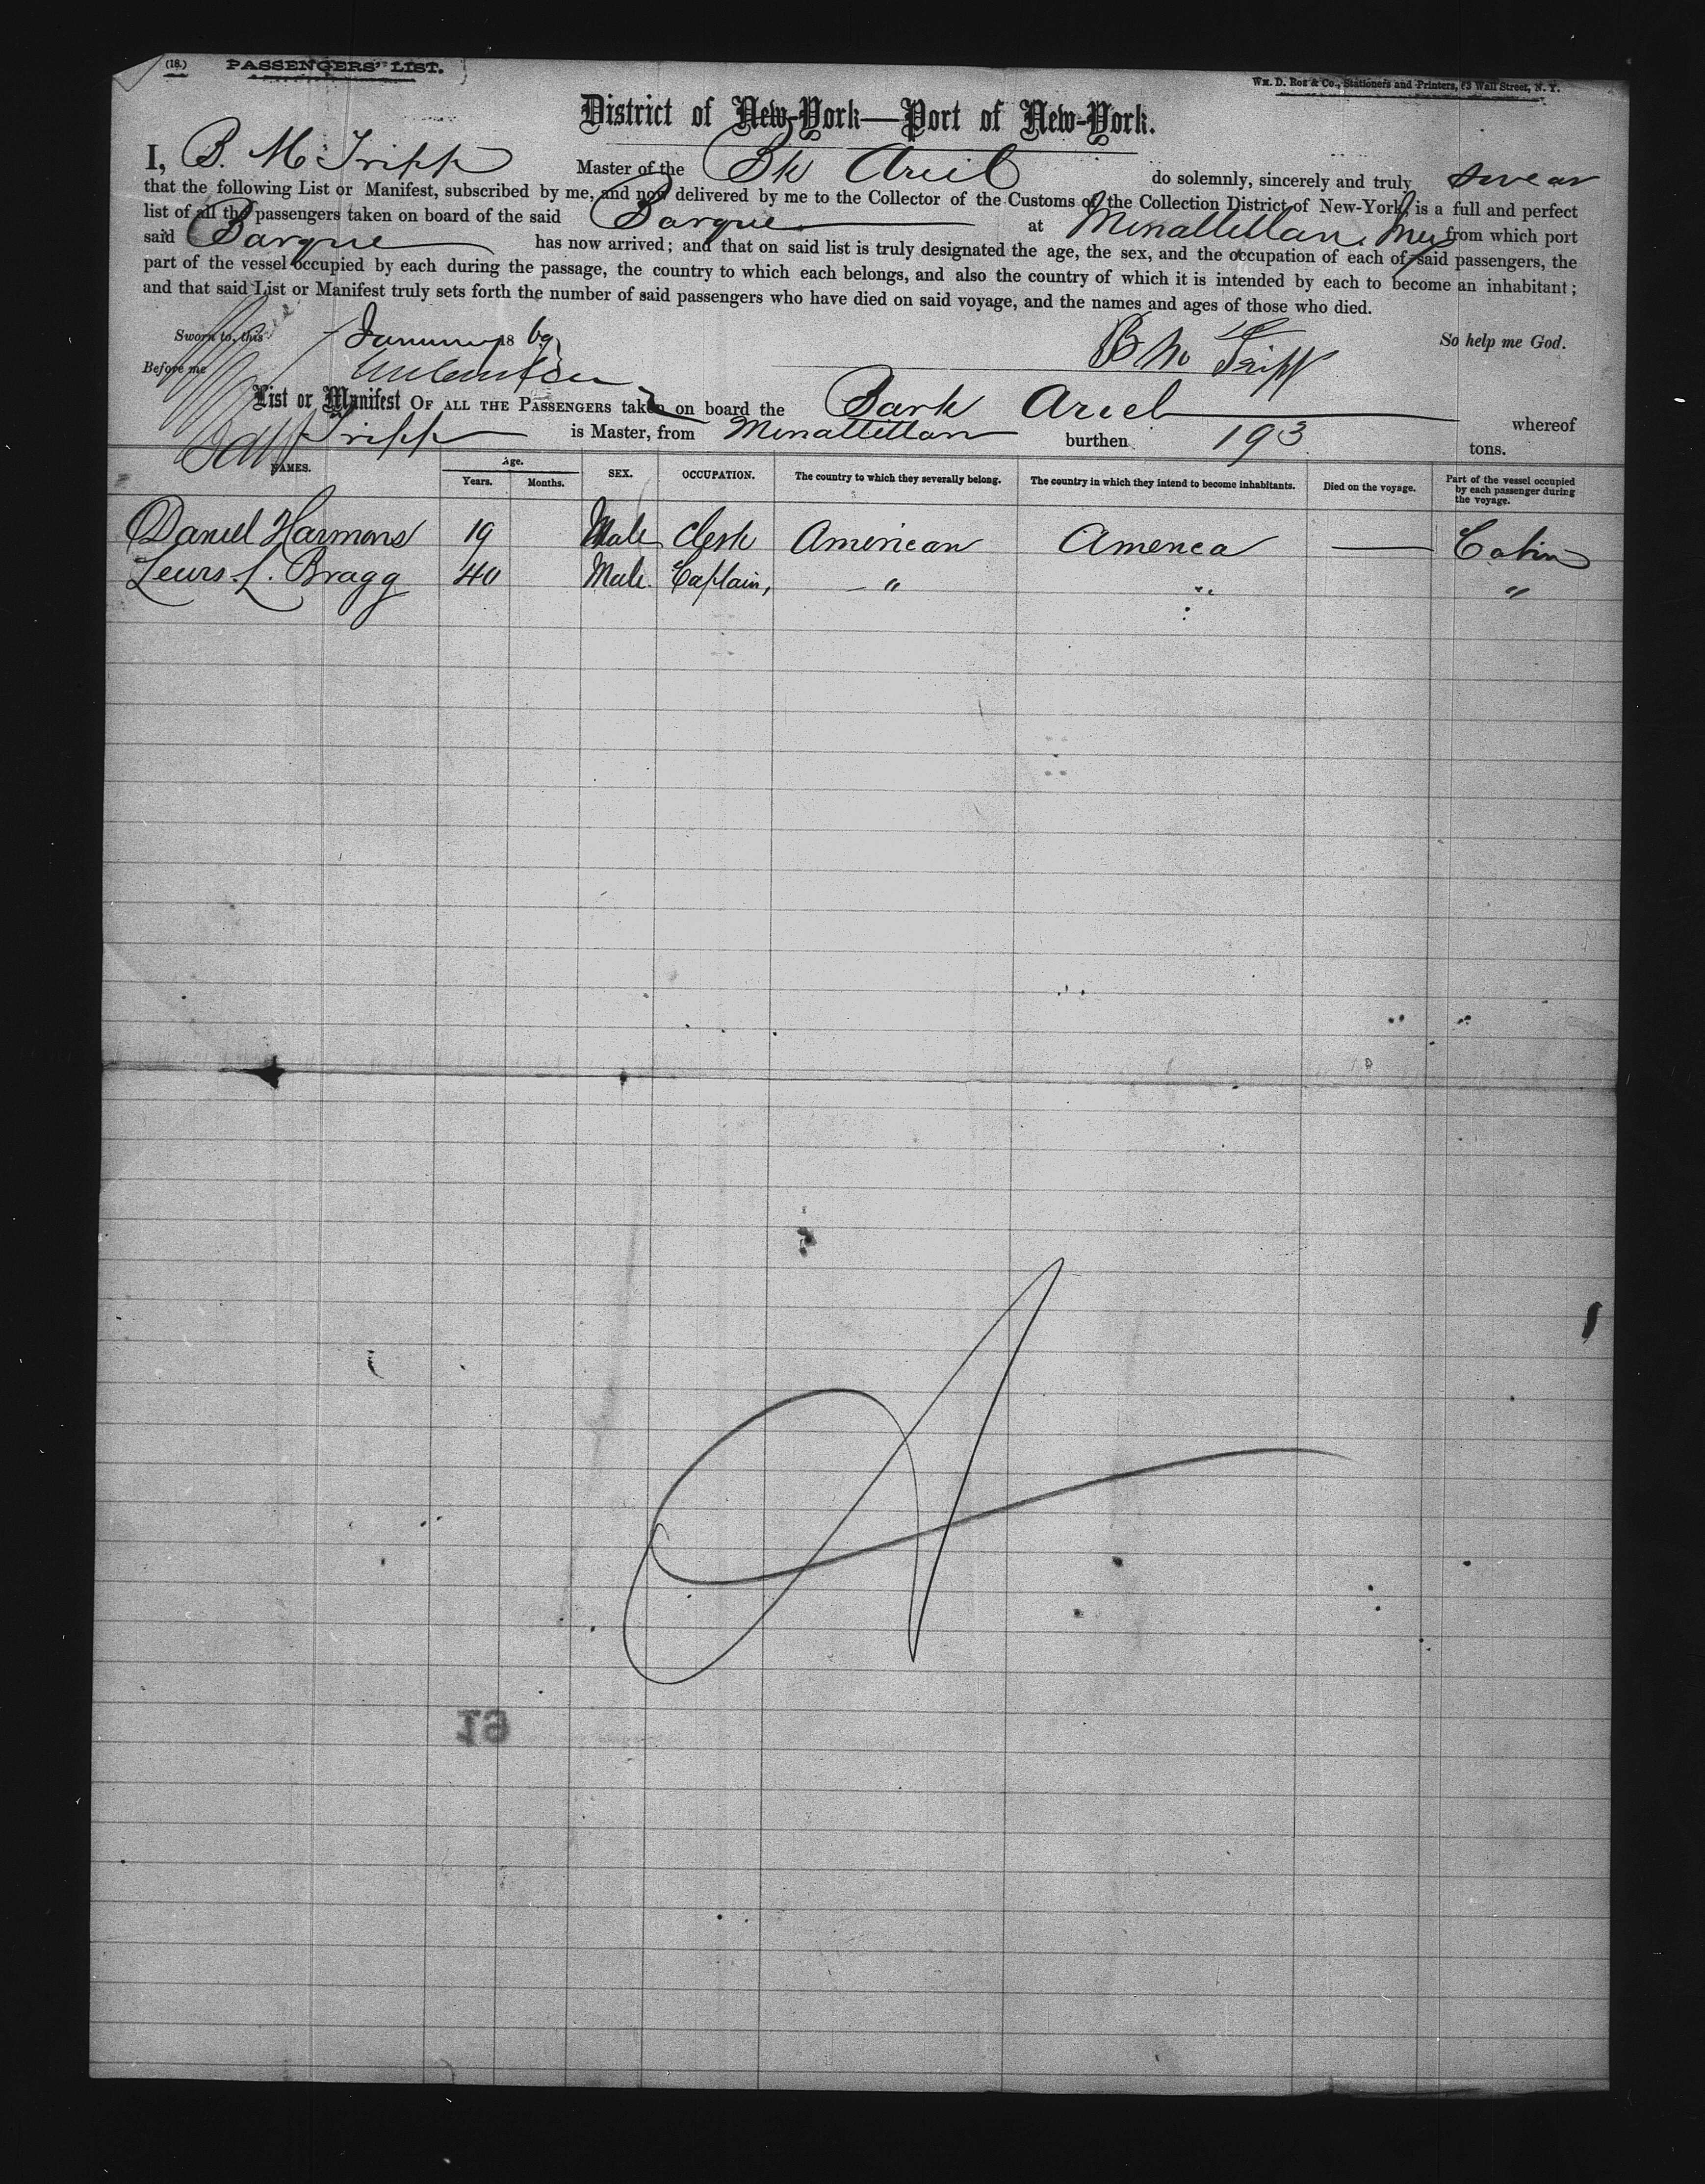 (18.) PASSENGERS' LIST.
Wm. D. Roe & Co., Stationers and Printers, 53 Wall Street, N. Y.
District of New-York—Port of New-York.
I, B. M. Tripp Master of the Bk Ariel do solemnly, sincerely and truly swear
that the following List or Manifest, subscribed by me, and now delivered by me to the Collector of the Customs of the Collection District of New-York, is a full and perfect
list of all the passengers taken on board of the said Barque at Minatitlan. Mex from which port
said Barque has now arrived; and that on said list is truly designated the age, the sex, and the occupation of each of said passengers, the
part of the vessel occupied by each during the passage, the country to which each belongs, and also the country of which it is intended by each to become an inhabitant;
and that said List or Manifest truly sets forth the number of said passengers who have died on said voyage, and the names and ages of those who died.
Sworn to, this January 1869 B M Tripp So help me God.
Before me
List or Manifest OF ALL THE PASSENGERS taken on board the Bark Ariel whereof
Tripp is Master, from Minatitlan burthen 193 tons.
NAMES. Age. Years. Months. SEX. OCCUPATION. The country to which they severally belong. The country in which they intend to become inhabitants. Died on the voyage. Part of the vessel occupied by each passenger during the voyage.
Daniel Harmons 19 Male Clerk American America — Cabin
Lewis. L. Bragg 40 Male. Captain, " " "
19